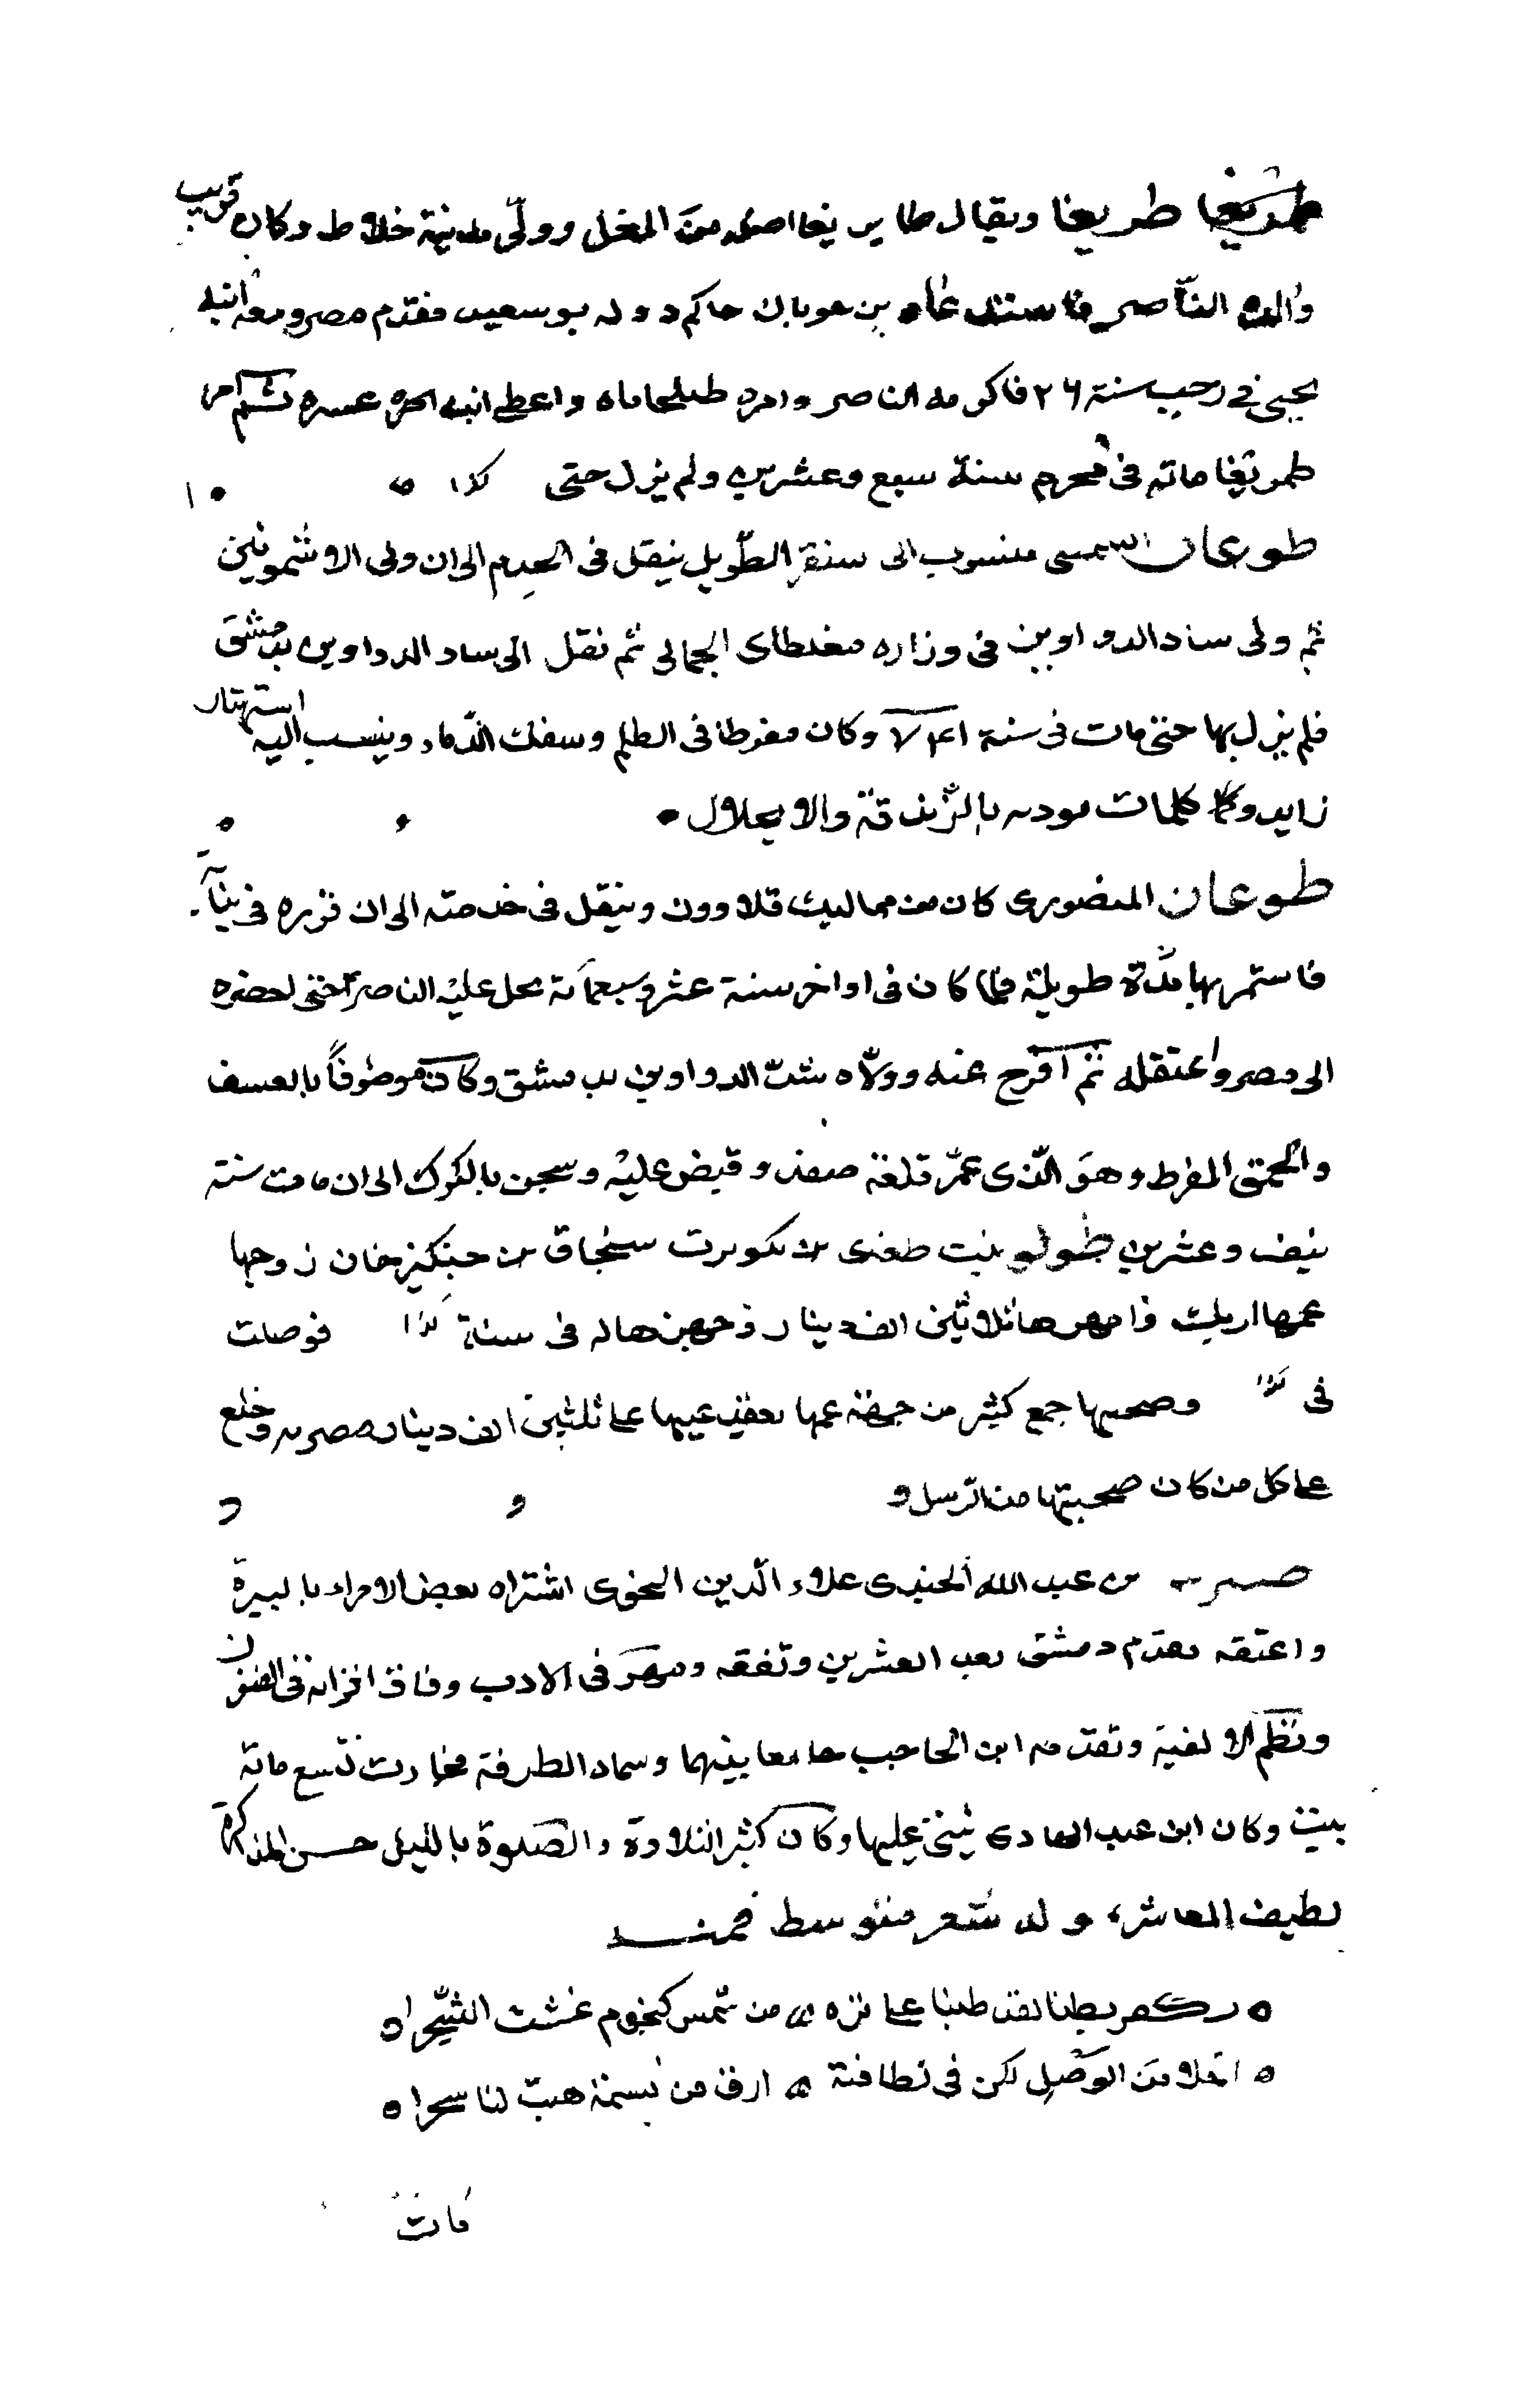 طريغا ويقال طاير يغا اصله من المغل وولى مدينة خلاط وكان قريب
والده الناصر بن هوباك حاكم دولة بوسعيد فقدم مصر ومعه ابنه
يحيى في رجب سنة ٢٦ فاكرمه الناصر وامره طبلخاناه واعطى ابنه امره عسره
طريغا ماته فى محرم سنة سبع وعشرين ولم يزل حتى كذا
طوعان السمسى منسوب الى سنقر الطويل ينقل فى الخدم الى ان ولى الاشمونين
ثم ولى ساد الدواوين فى وزاره مغلطاى الجمالى ثم نقل الى ساد الدواوين بدمشق
فلم يزل بها حتى مات فى سنة ٧٤١ وكان مفرطا فى الظلم وسفك الدماء وينسب اليه استهتار
زايد كلمات مودىه بالزندقة والانحلال
طوعان المنصورى كان من مماليك قلاوون وينقل فى خدمته الى ان قرره فى نيابه
فاستمر بها مدة طويلة فلما كان فى اواخر سنة عشر وسبعمائة تحيل عليه الناصر حتى احضره
الى مصر واعتقله ثم افرج عنه وولاه شد الدواوين بدمشق وكان موصوفا بالعسف
والحمق المفرط وهو الذى عمر قلعة صفد وقبض عليه وسجن بالكرك الى ان مات سنة
نيف وعشرين طولو بنت طغدى بن بكوبرت سنجاق بن جنكيز خان زوجها
عمها ازبك وامهرها ثلاثين الف دينار وجهزها له فى سنة كذا فوصلت
فى كذا وصحبها جمع كثير من جهة عمها بعقد عليها على ثلثين الف دينار مصريه وخلع
على كل من كان صحبتها من الرسل
بن عبد الله الجندى علاء الدين النحوى اشتراه بعض الامراء بالبيرة
واعتقه بقدم دمشق بعد العشرين وتفقه ومهر فى الادب وفاق اقرانه فى الفنون
ونظم الالفية وتقدمه ابن الحاجب جامعا بينهما وسماه الطرفة فجاءت تسع مائة
بيت وكان ابن عبد الهادى يثنى عليها وكان كثير التلاوة والصلوة بالليل حسن المذاكرة
لطيف المعاشره وله شعر متوسط فمنه
بطنا لقد طبنا على نزه من شمس كنجوم غشت الشجرا
احلا من الوصل لكن فى نظافتة ارق من نسمة هبت لنا سحرا
مات